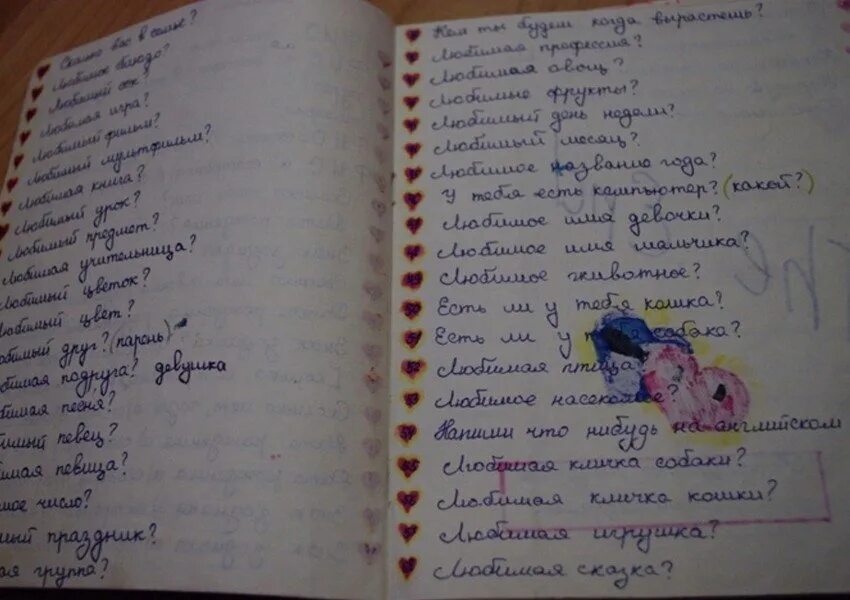 Сколько вас в семье?
Любимое блюдо?
Любимый сок?
Любимая игра?
Любимый фильм?
Любимый мультфильм?
Любимая книга?
Любимый урок?
Любимый предмет?
Любимая учительница?
Любимый цветок?
Любимый цвет?
бимый друг? (парень)
бимая подруга? девушка
бимая песня?
имый певец?
имая певица?
мое число?
мый праздник?
ая группа?
Кем ты будеш когда вырастешь?
Любимая профессия?
Любимая овощ?
Любимые фрукты?
Любимый день недели?
Любимый месяц?
Любимое названию года?
У тебя есть кампьютер? (какой?)
Любимое има девочки?
Любимое имя мальчика?
49 Любимое животное?
50 Есть ли у тебя кошка?
51 Есть ли у тебя собака?
52 Любимая птица?
53 Любимое насекомое?
54 Напиши что нибудь на английском
55 Любимая кличка собаки?
56 Любимая кличка кошки?
57 Любимая игрушка?
Любимая сказка?